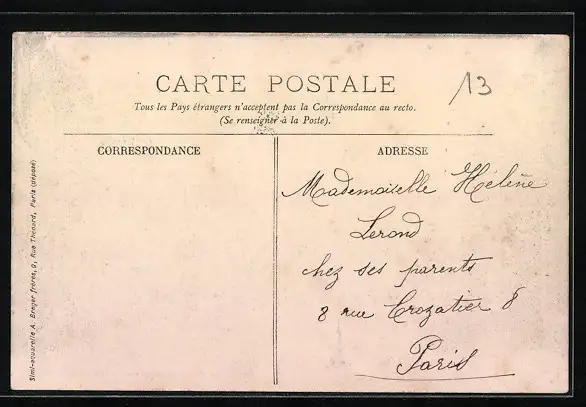 CARTE POSTALE
13
Tous les Pays étrangers n'acceptent pas la Correspondance au recto.
(Se renseigner à la Poste).
CORRESPONDANCE
ADRESSE
Mademoiselle Hélène
Lerond
chez ses parents
8 rue Crozatier 8
Paris
Simi-aquarelle A. Breger frères, 9, Rue Thénard, Paris (déposé)